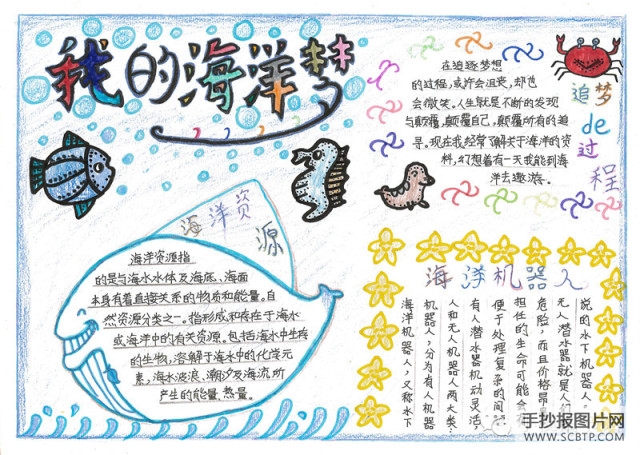 我的海洋梦
在追逐梦想
的过程,或许会沮丧,却也
会微笑。人生就是不断的发现
与颠覆,颠覆自己,颠覆所有的追
寻。现在我经常了解关于海洋的资
料,幻想着有一天我能到海
洋去遨游。
追梦
de
过
程
海洋资
源
海洋资源指
的是与海水水体及海底、海面
本身有着直接关系的物质和能量。自
然资源分类之一。指形成和存在于海水
或海洋中的有关资源。包括海水中生存
的生物,溶解于海水中的化学元
素,海水波浪、潮汐及海流所
产生的能量、热量。
海洋机器人
海洋机器人,又称水下
机器人,分为有人机器
人和无人机器人两大类:
有人潜水器机动灵活,
便于处理复杂的问
担任的生命可能会
危险,而且价格昂
无人潜水器就是人
说的水下机器人。
手抄报图片网
WWW.SCBTP.COM